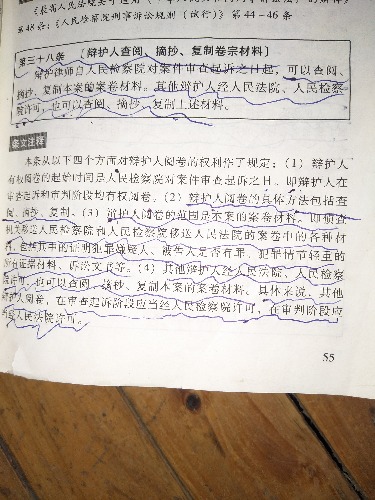 《最高人民法院关于适用《中华人民共和国刑事诉讼法》的解释》
第48条;《人民检察院刑事诉讼规则(试行)》第44-46条
第三十八条 〔辩护人查阅、摘抄、复制卷宗材料〕
辩护律师自人民检察院对案件审查起诉之日起,可以查阅、
摘抄、复制本案的案卷材料。其他辩护人经人民法院、人民检察
院许可,也可以查阅、摘抄、复制上述材料。
条文注释
本条从以下四个方面对辩护人阅卷的权利作了规定:(1)辩护人
有权阅卷的起始时间是人民检察院对案件审查起诉之日。即辩护人在
审查起诉和审判阶段均有权阅卷。(2)辩护人阅卷的具体方法包括查
阅、摘抄、复制。(3)辩护人阅卷的范围是本案的案卷材料。即侦查
机关移送人民检察院和人民检察院移送人民法院的案卷中的各种材
料,包括其中的证明犯罪嫌疑人、被告人是否有罪、犯罪情节轻重的
所有证据材料、诉讼文书等。(4)其他辩护人经人民法院、人民检察
院许可,也可以查阅、摘抄、复制本案的案卷材料。具体来说,其他
辩护人阅卷,在审查起诉阶段应当经人民检察院许可,在审判阶段应
当经人民法院许可。
55